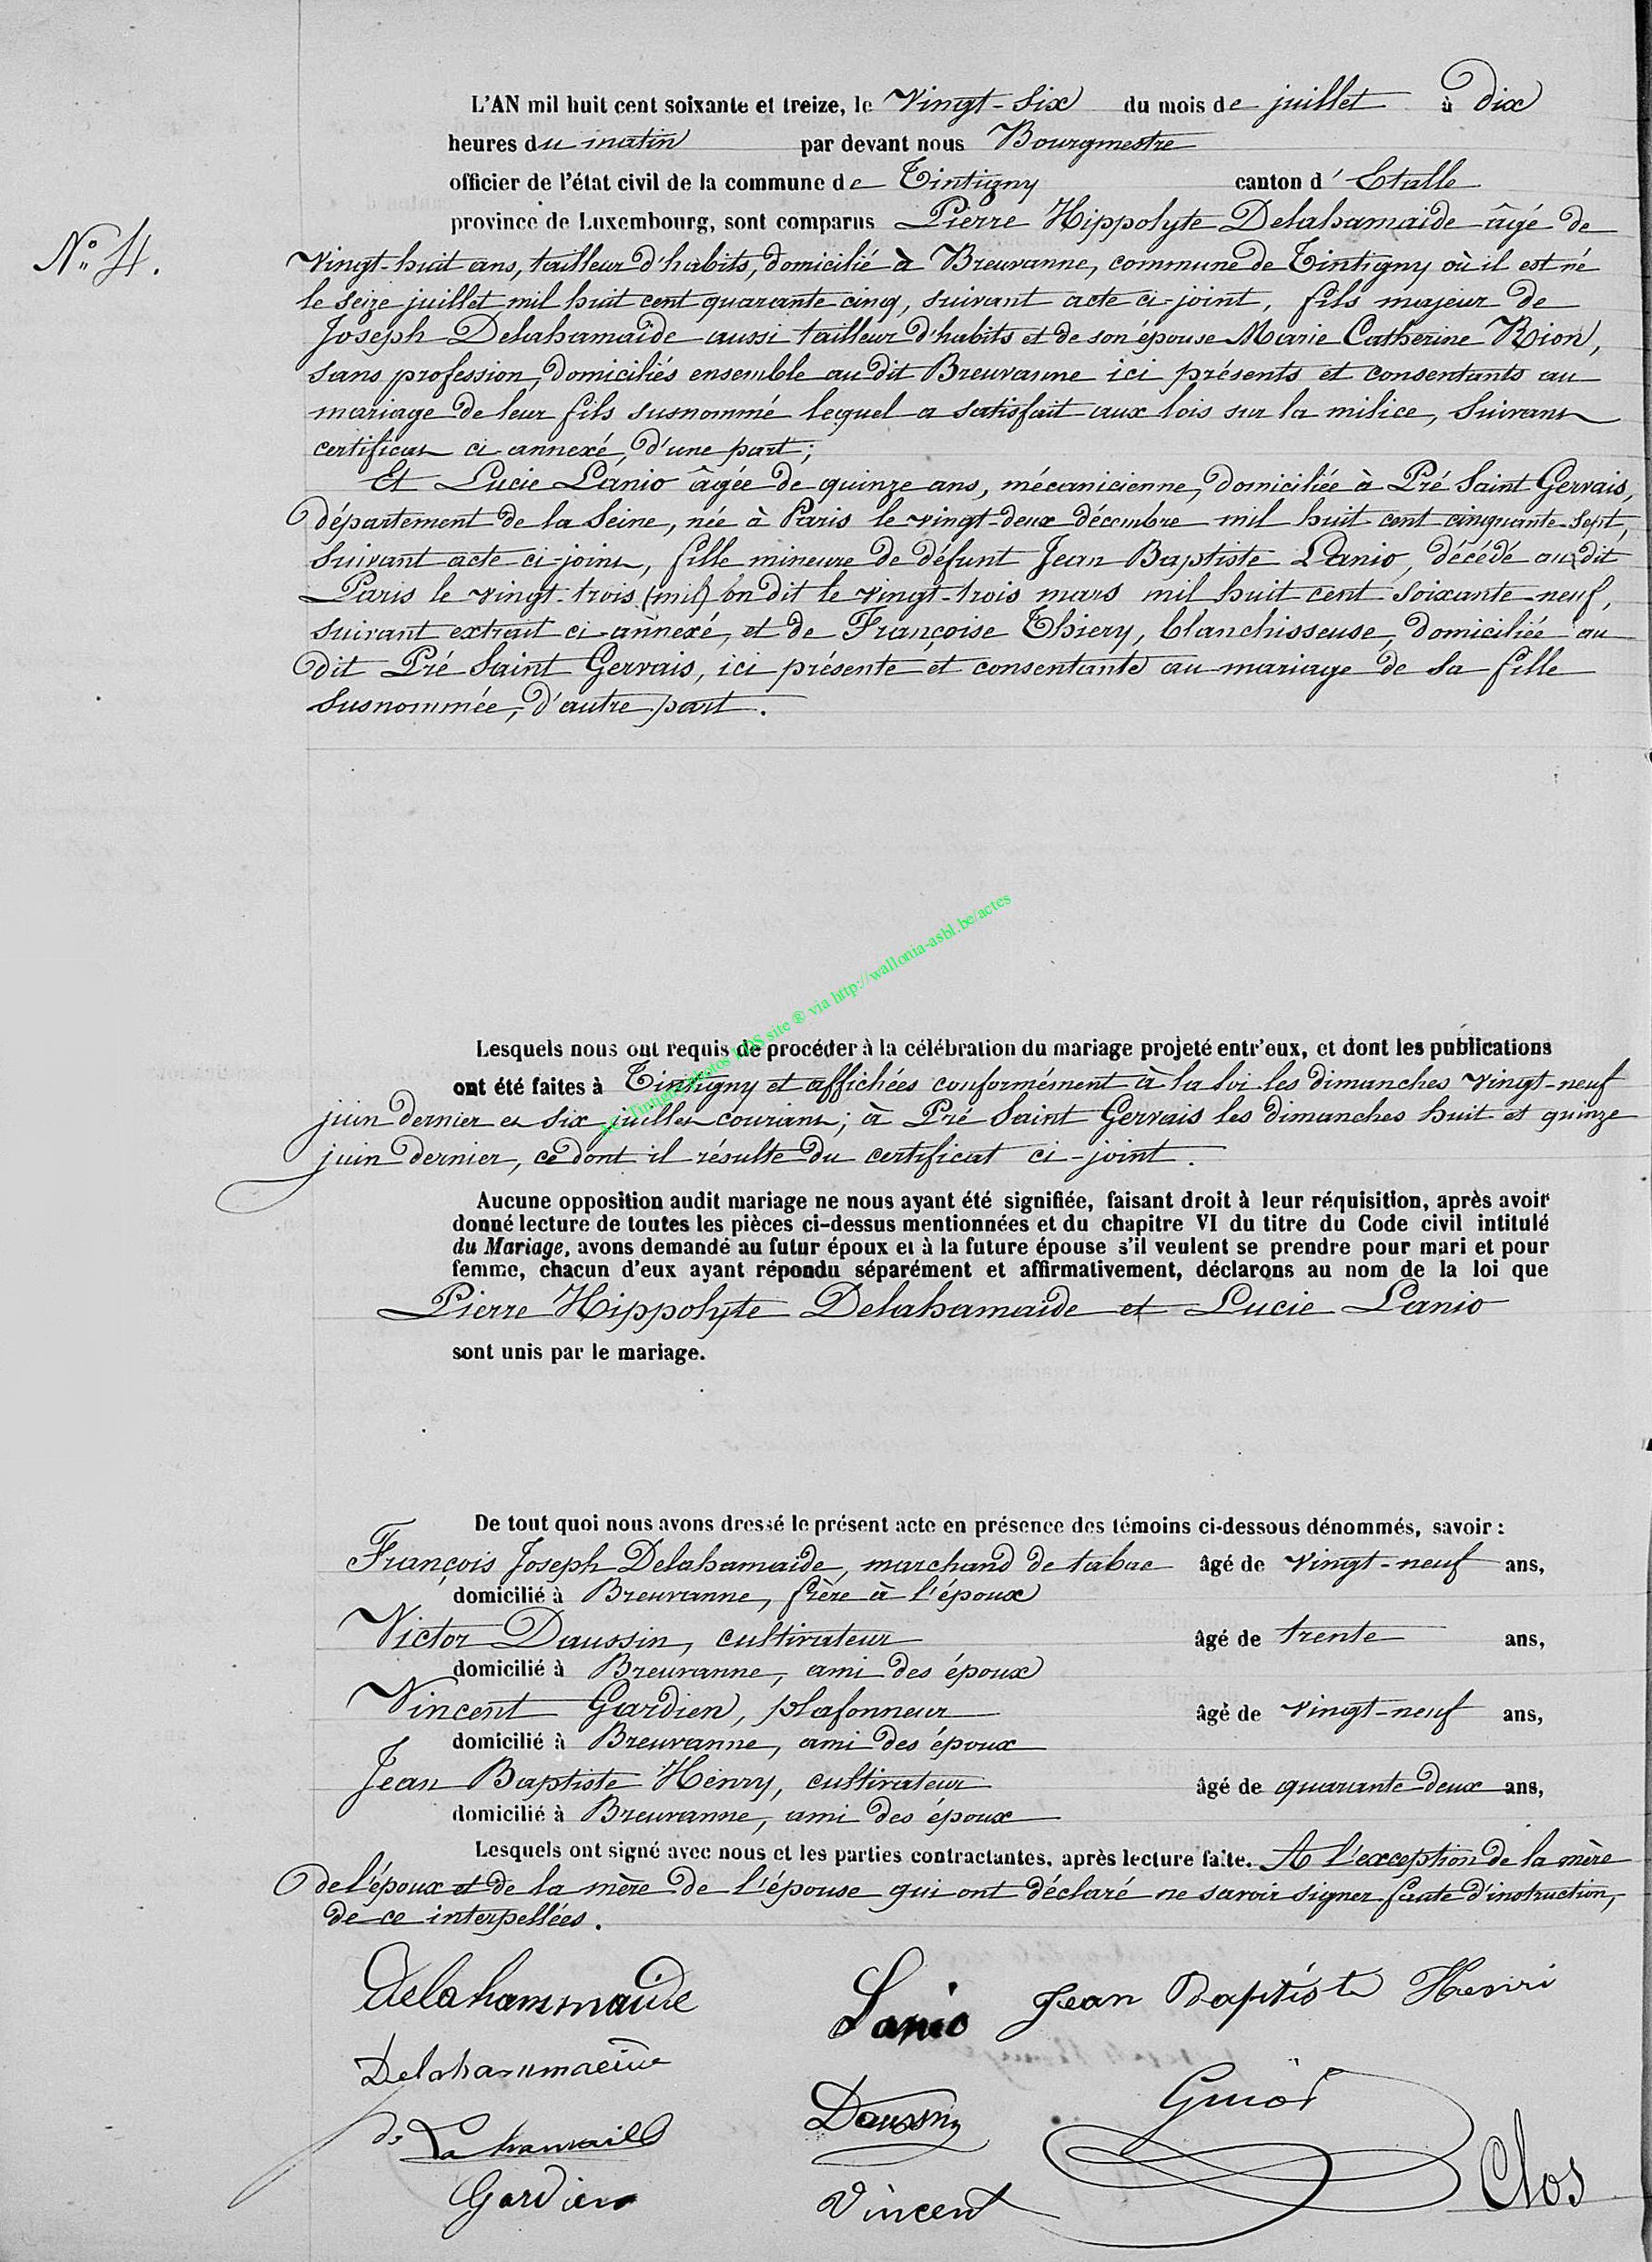 L'AN mil huit cent soixante et treize, le Vingt-Six du mois de juillet à Dix
heures du matin par devant nous Bourgmestre
officier de l'état civil de la commune de Tintigny canton d' Etalle
province de Luxembourg, sont comparus Pierre Hippolyte Delahamaide âgé de
N° 4.
Vingt-huit ans, tailleur d'habits, domicilié à Breuvanne, commune de Tintigny où il est né
le seize juillet mil huit cent quarante cinq, suivant acte ci-joint, fils majeur de
Joseph Delahamaide aussi tailleur d'habits et de son épouse Marie Catherine Rion,
sans profession, domiciliés ensemble au dit Breuvanne ici présents et consentants au
mariage de leur fils susnommé lequel a satisfait aux lois sur la milice, suivant
certificat ci annexé, d'une part;
Et Lucie Lanio âgée de quinze ans, mécanicienne, domiciliée à Pré Saint Gervais,
département de la Seine, née à Paris le vingt-deux décembre mil huit cent cinquante-sept,
suivant acte ci-joint, fille mineure de défunt Jean Baptiste Lanio, décédé au dit
Paris le vingt-trois (mil) on dit le vingt-trois mars mil huit cent soixante-neuf,
suivant extrait ci-annexé, et de Françoise Thiery, blanchisseuse, domiciliée au
dit Pré Saint Gervais, ici présente et consentante au mariage de sa fille
susnommée, d'autre part.
AC Tintigny photos LDS site ® via http://wallonia-asbl.be/actes
Lesquels nous ont requis de procéder à la célébration du mariage projeté entr'eux, et dont les publications
ont été faites à Tintigny et affichées conformément à la loi les dimanches vingt-neuf
juin dernier et six juillet courant; à Pré Saint Gervais les dimanches huit et quinze
juin dernier, ce dont il résulte du certificat ci-joint.
Aucune opposition audit mariage ne nous ayant été signifiée, faisant droit à leur réquisition, après avoir
donné lecture de toutes les pièces ci-dessus mentionnées et du chapitre VI du titre du Code civil intitulé
du Mariage, avons demandé au futur époux et à la future épouse s'il veulent se prendre pour mari et pour
femme, chacun d'eux ayant répondu séparément et affirmativement, déclarons au nom de la loi que
Pierre Hippolyte Delahamaide et Lucie Lanio
sont unis par le mariage.
De tout quoi nous avons dressé le présent acte en présence des témoins ci-dessous dénommés, savoir :
François Joseph Delahamaide, marchand de tabac âgé de vingt-neuf ans,
domicilié à Breuvanne, frère à l'époux
Victor Daussin, cultivateur âgé de trente ans,
domicilié à Breuvanne, ami des époux
Vincent Gardien, plafonneur âgé de vingt-neuf ans,
domicilié à Breuvanne, ami des époux
Jean Baptiste Henry, cultivateur âgé de quarante-deux ans,
domicilié à Breuvanne, ami des époux
Lesquels ont signé avec nous et les parties contractantes, après lecture faite. A l'exception de la mère
de l'époux et de la mère de l'épouse qui ont déclaré ne savoir signer faute d'instruction,
de ce interpellées.
Delahammaide Lanio Jean Baptiste Henri
Delahammaide
Daussin Guiot
de Lahamaide
Clos
Gardien Vincent